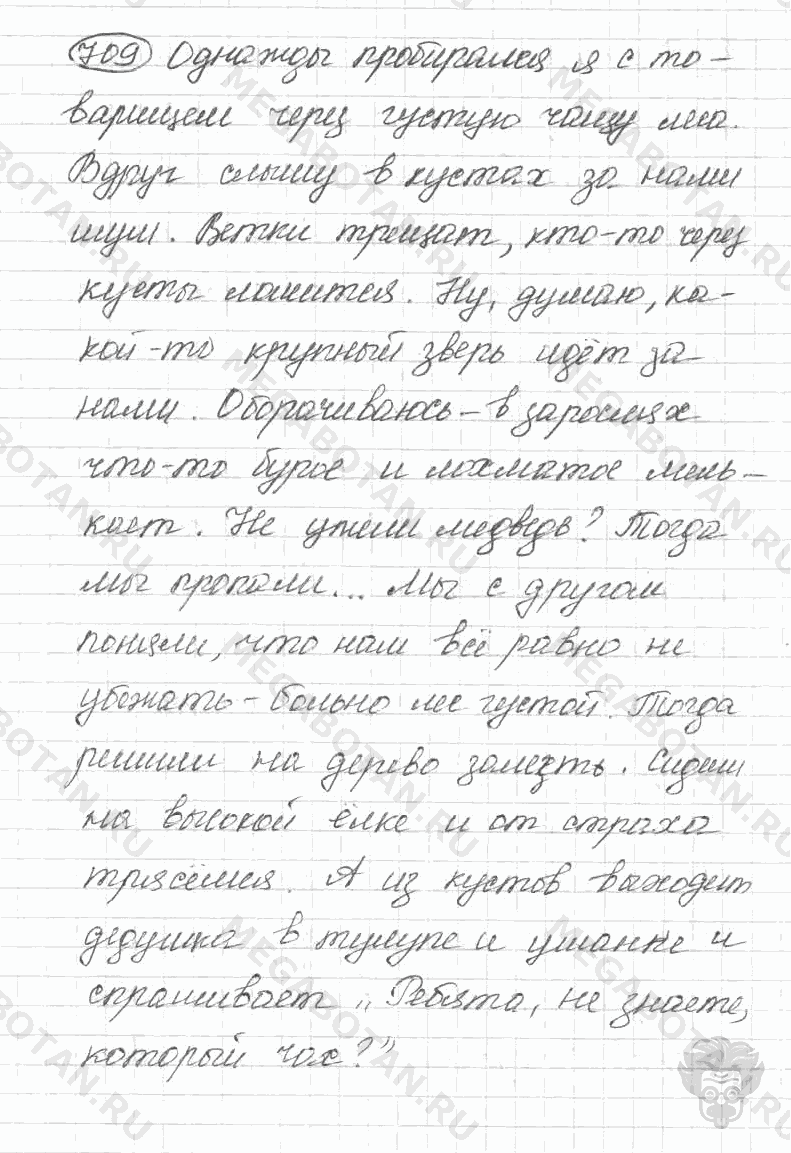 709 Однажды пробирался я с то-
варищем через густую чащу леса.
Вдруг слышу в кустах за нами
шум. Ветки трещат, кто-то через
кусты ломится. Ну, думаю, ка-
кой-то крупный зверь идёт за
нами. Оборачиваюсь - в зарослях
что-то бурое и лохматое мель-
кает. Не ужели медведь? Тогда
мы пропали... Мы с другом
поняли, что нам всё равно не
убежать - больно лес густой. Тогда
решили на дерево залезть. Сидим
на высокой ёлке и от страха
трясёмся. А из кустов выходит
дедушка в тулупе и ушанке и
спрашивает „Ребята, не знаете,
который час?"
MEGABOTAN.RU